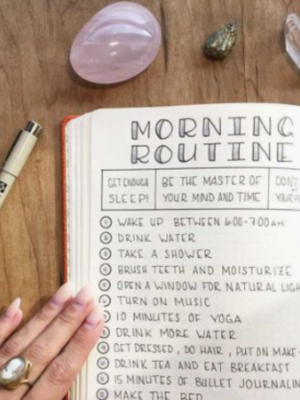 MORNING
ROUTINE
GET ENOUGH
SLEEP!
BE THE MASTER OF
YOUR MIND AND TIME
WAKE UP BETWEEN 6:00-7:00AM
DRINK WATER
TAKE A SHOWER
BRUSH TEETH AND MOISTURIZE
OPEN A WINDOW FOR NATURAL LIGH
TURN ON MUSIC
10 MINUTES OF YOGA
DRINK MORE WATER
GET DRESSED, DO HAIR, PUT ON MAKE-
DRINK TEA AND EAT BREAKFAST
15 MINUTES OF BULLET JOURNALIN
MAKE THE BED